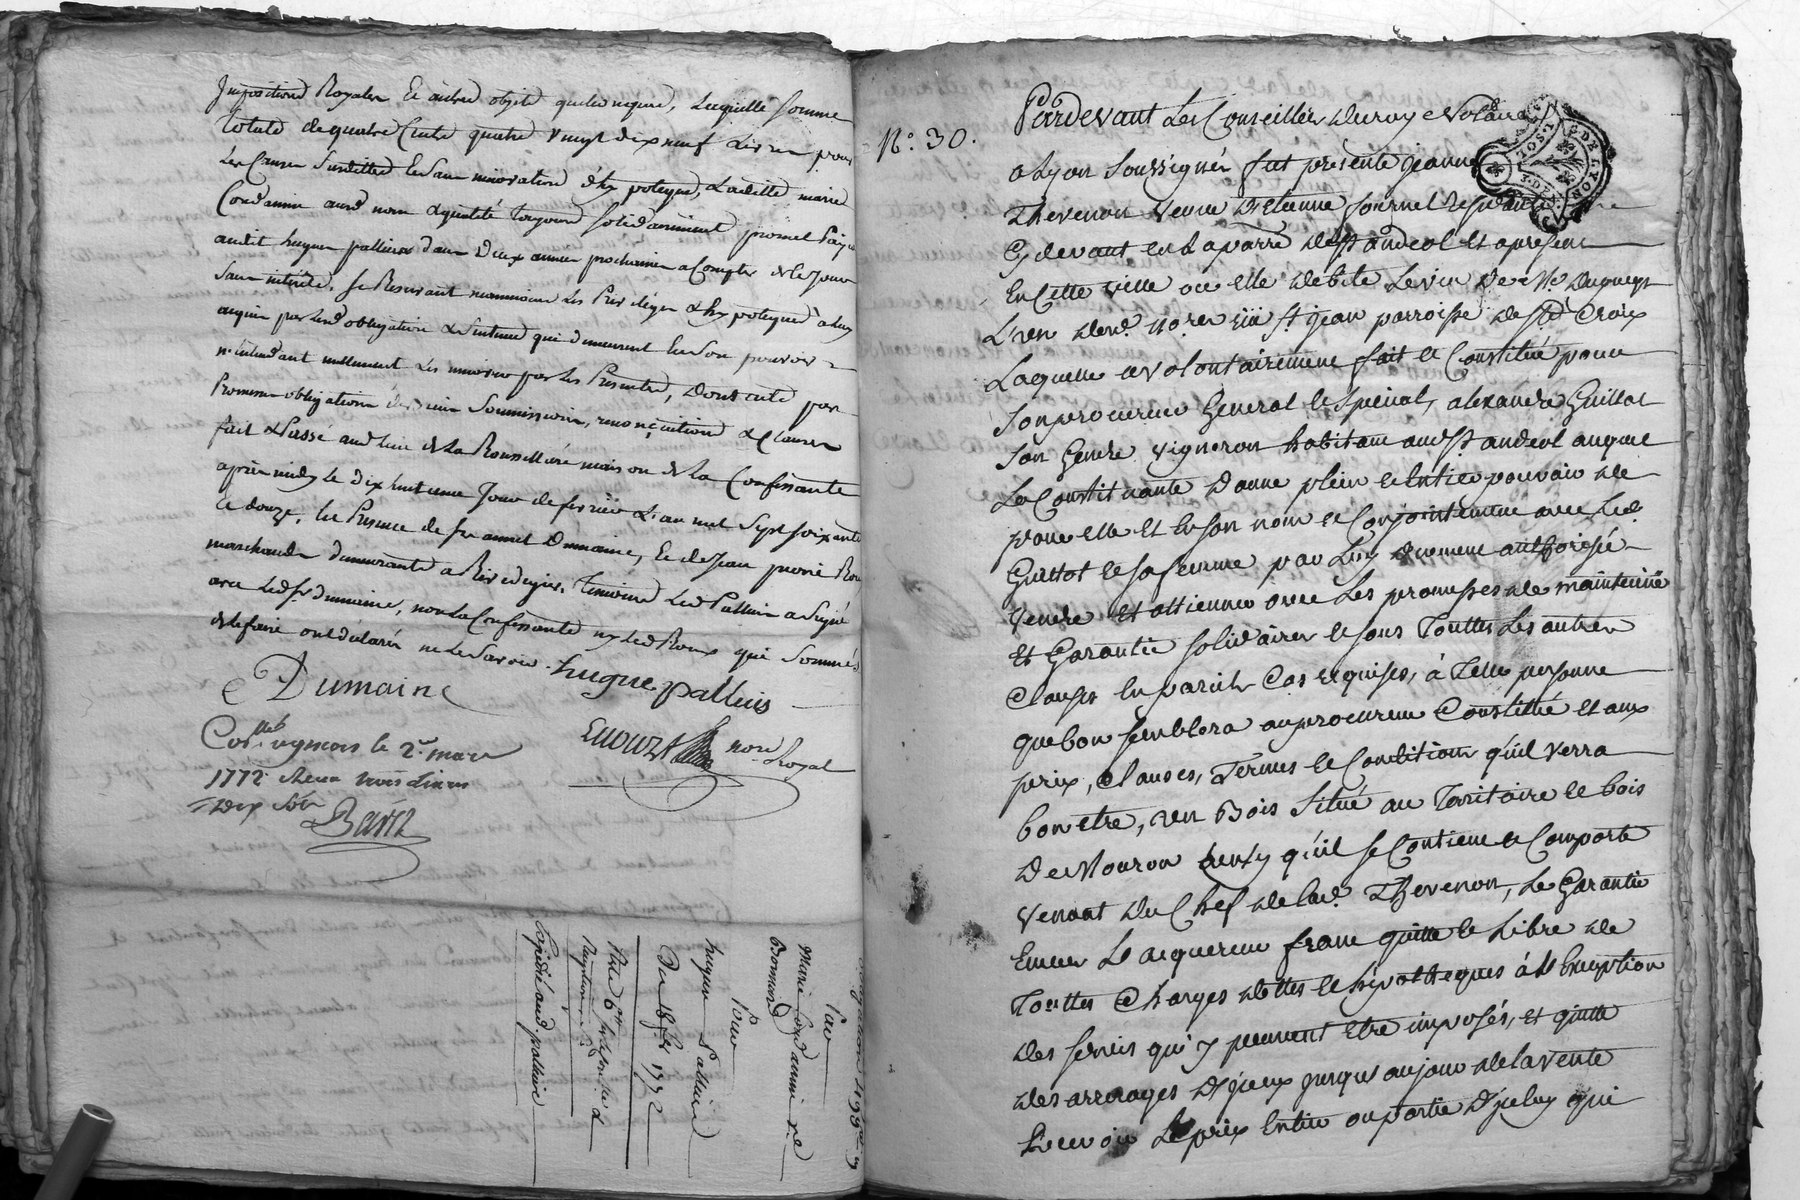 Impositions Royales Et autres objets quelconques, Laquelle somme
totale de quatre Cents quatre vingt dix neuf Livres pour
Les Causes Susdittes Et Sans innovation d'hypoteque, Laditte marie
Condamin aud. nom & qualité toujours solidairement promet Payer
audit hugue pallieus dans Deux années prochaines a Compter de Ce Jour
Sans intérêts, Se Reservant neanmoins Les Privileges & hypoteques à luy
acquis par lesd. obligation & Sentence qui demeurent En Son pouvoir
n'entendant nullement Les innover par les Presentes, Dont acte par
Promesses obligations Soumissions, renonciations & Clauses
fait & Passé aud. lieu de La maison de la Confessante
après midy le dix huitieme Jour de fevrier L'an mil Sept Soixante
Et douze, En Presence de Sr annet Dumaine, Et de Jean pierre Roux
marchands demeurants a Rivedegier, temoins Led. Pallieus a Signé
avec Led. Sr. Dumaine, non La Confessante ny Led. Roux qui Sommés
de le faire ont déclaré ne Le Savoir.
hugue pallieus
Dumaine
not. Royal
le 2e. mars
1772 Reçu trois Livres
Dix sols
N.° 30.
Pardevant Les Conseillers du roy Notaires
a Lyon Soussignés fut presente jeanne
Thevenon veuve d'Etienne fournel residante
Cydevant en La parr.e de St. andeol Et apresent
En Cette ville ou elle debite Le vin de Mr.
St. jean parroisse de Ste. Croix
Laquelle a volontairement fait et Constitué pour
Son procureur General et Special, alexandre Guillot
Son Gendre vigneron habitant aud. St. andeol auquel
La Constituante Donne plein et Entier pouvoir de
pour elle et En son nom et Conjointement avec Led.
Guillot et sa femme par Luy duement authorisée
vendre et alliener avec Les promesses de maintenüe
et Garantie solidaires et sous Touttes Les autres
Clauses En pareils Cas requises, à Telle personne
que bon semblera au procureur Constitué et aux
prix, Clauses, Termes et Conditions qu'il verra
bon etre, un Bois Situé au Territoire et bois
De Mouron qu'il se Contient et Comporte
venant du Chef de lad. Thevenon, Le Garantir
Envers L'acquereur franc quitte et Libre de
Touttes Charges dettes et hipotheques à L'Exception
des servis qui y peuvent Etre imposés, et quitte
des arrerages D'yceux jusqu'au jour de la vente
Recevoir Le prix Entier ou partie D'yceluy qui
Par
marie Condamin ve.
Pour
hugue Pallieus
Du 18 fer. 1772
Expédié aud. pallieus